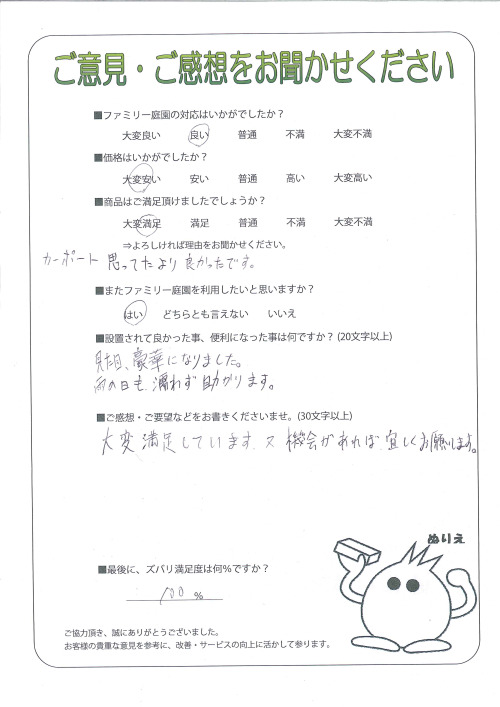 ご意見・ご感想をお聞かせください
■ファミリー庭園の対応はいかがでしたか？
大変良い 良い 普通 不満 大変不満
■価格はいかがでしたか？
大変安い 安い 普通 高い 大変高い
■商品はご満足頂けましたでしょうか？
大変満足 満足 普通 不満 大変不満
⇒よろしければ理由をお聞かせください。
カーポート 思ってたより良かったです。
■またファミリー庭園を利用したいと思いますか？
はい どちらとも言えない いいえ
■設置されて良かった事、便利になった事は何ですか？(20文字以上)
見た目、豪華になりました。
雨の日も、濡れず助かります。
■ご感想・ご要望などをお書きくださいませ。(30文字以上)
大変満足しています。又機会があれば、宜しくお願いします。
ぬりえ
■最後に、ズバリ満足度は何％ですか？
100 %
ご協力頂き、誠にありがとうございました。
お客様の貴重な意見を参考に、改善・サービスの向上に活かして参ります。